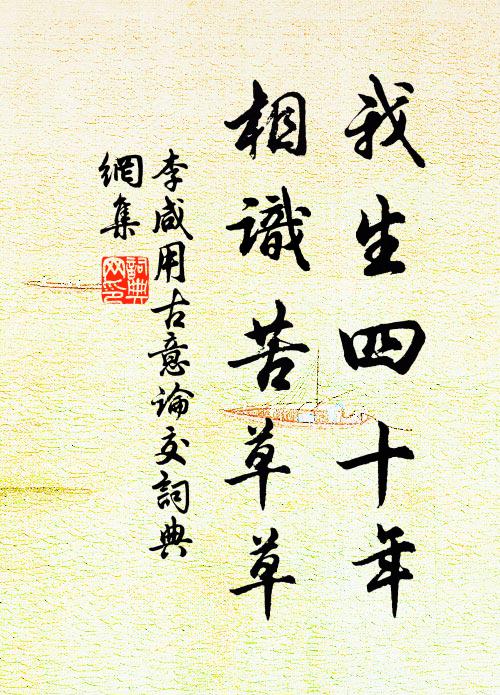 我生四十年
相識苦草草
李咸用古意論交詞典
網集
詞典
网印